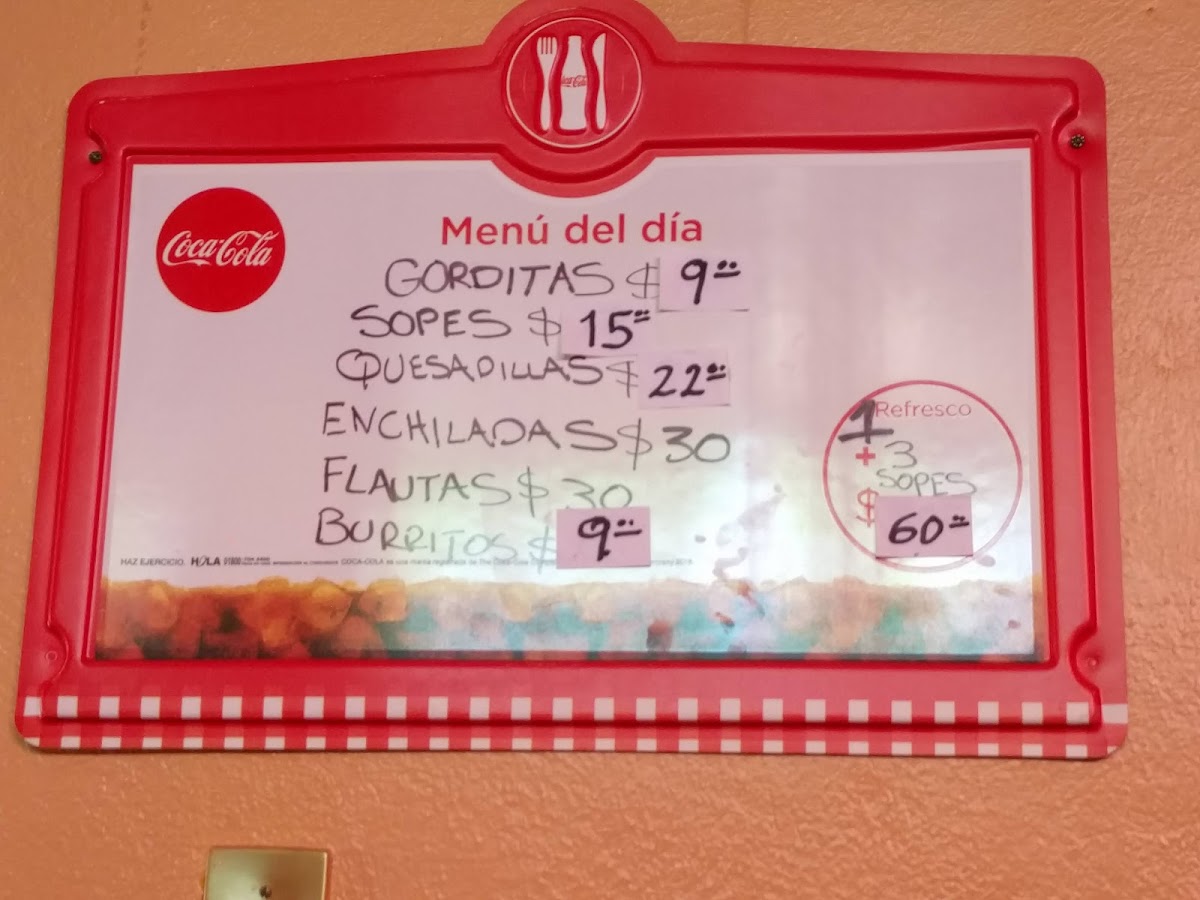 Coca-Cola
Coca-Cola
Menú del día
GORDITAS $ 9.00
SOPES $ 15.00
QUESADILLAS $ 22.00
ENCHILADAS $ 30
FLAUTAS $ 30
BURRITOS $ 9.00
1 Refresco
+ 3
SOPES
$ 60.00
HAZ EJERCICIO. HOLA COCA-COLA es una marca registrada de The Coca-Cola